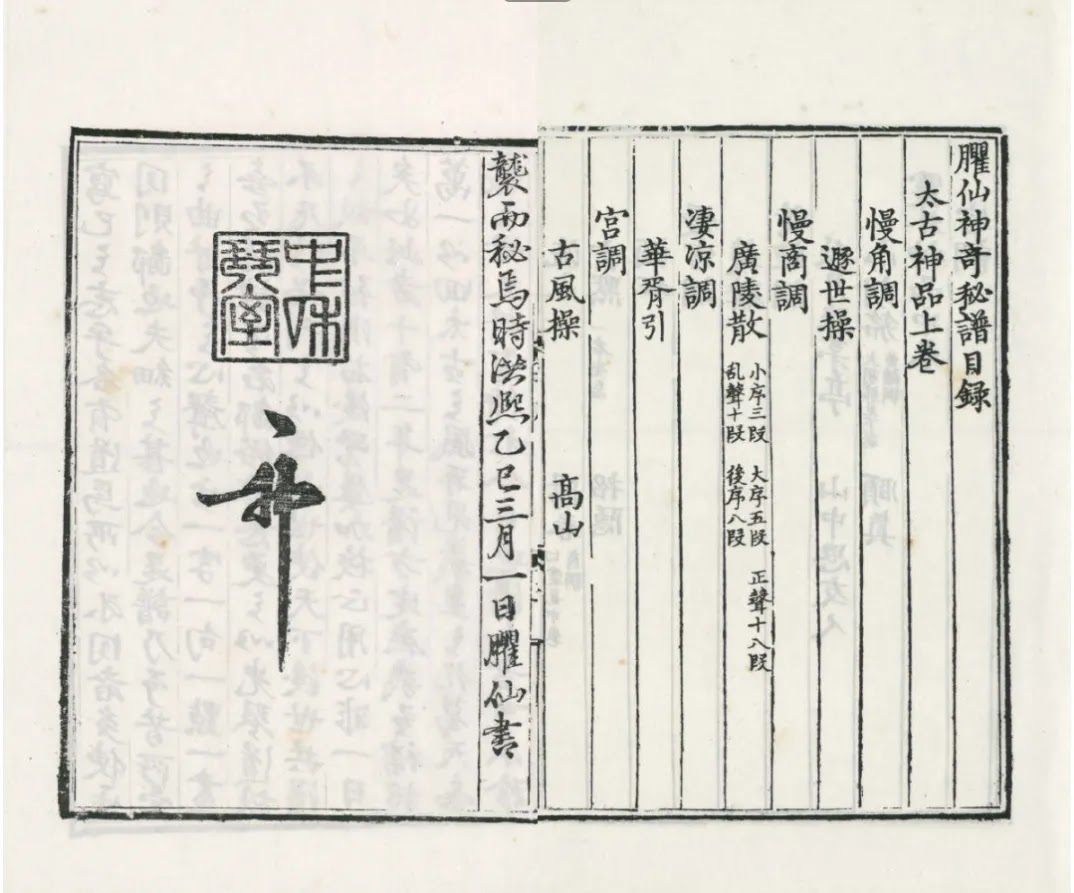 臞仙神奇秘譜目録
太古神品上卷
慢角調
遯世操
慢商調
廣陵散 小序三段 大序五段 正聲十八段
乱聲十段 後序八段
凄涼調
華胥引
宫調
古風操 高山
襲而秘焉時洪熙乙巳三月一日臞仙書
中和琴室